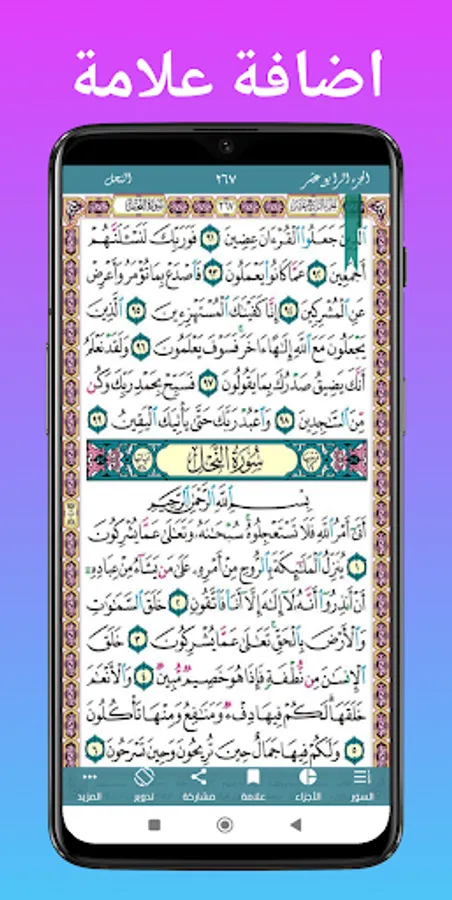 اضافة علامة
الجزء الرابع عشر ٢٦٧ النحل
٢٦٧
الَّذِينَ جَعَلُوا الْقُرْءَانَ عِضِينَ ٩١ فَوَرَبِّكَ لَنَسْـَٔلَنَّهُمْ
أَجْمَعِينَ ٩٢ عَمَّا كَانُوا يَعْمَلُونَ ٩٣ فَاصْدَعْ بِمَا تُؤْمَرُ وَأَعْرِضْ
عَنِ الْمُشْرِكِينَ ٩٤ إِنَّا كَفَيْنَٰكَ الْمُسْتَهْزِءِينَ ٩٥ الَّذِينَ
يَجْعَلُونَ مَعَ اللَّهِ إِلَٰهًا ءَاخَرَ فَسَوْفَ يَعْلَمُونَ ٩٦ وَلَقَدْ نَعْلَمُ
أَنَّكَ يَضِيقُ صَدْرُكَ بِمَا يَقُولُونَ ٩٧ فَسَبِّحْ بِحَمْدِ رَبِّكَ وَكُن
مِّنَ السَّٰجِدِينَ ٩٨ وَاعْبُدْ رَبَّكَ حَتَّىٰ يَأْتِيَكَ الْيَقِينُ ٩٩
سُورَةُ النَّحْلِ
بِسْمِ اللَّهِ الرَّحْمَٰنِ الرَّحِيمِ
أَتَىٰ أَمْرُ اللَّهِ فَلَا تَسْتَعْجِلُوهُ سُبْحَٰنَهُ وَتَعَٰلَىٰ عَمَّا يُشْرِكُونَ
١ يُنَزِّلُ الْمَلَٰٓئِكَةَ بِالرُّوحِ مِنْ أَمْرِهِ عَلَىٰ مَن يَشَآءُ مِنْ عِبَادِهِ
أَنْ أَنذِرُوا أَنَّهُ لَآ إِلَٰهَ إِلَّآ أَنَا فَاتَّقُونِ ٢ خَلَقَ السَّمَٰوَٰتِ
وَالْأَرْضَ بِالْحَقِّ تَعَٰلَىٰ عَمَّا يُشْرِكُونَ ٣ خَلَقَ
الْإِنسَٰنَ مِن نُّطْفَةٍ فَإِذَا هُوَ خَصِيمٌ مُّبِينٌ ٤ وَالْأَنْعَٰمَ
خَلَقَهَا لَكُمْ فِيهَا دِفْءٌ وَمَنَٰفِعُ وَمِنْهَا تَأْكُلُونَ
٥ وَلَكُمْ فِيهَا جَمَالٌ حِينَ تُرِيحُونَ وَحِينَ تَسْرَحُونَ ٦
السور الأجزاء علامة مشاركة تدوير المزيد